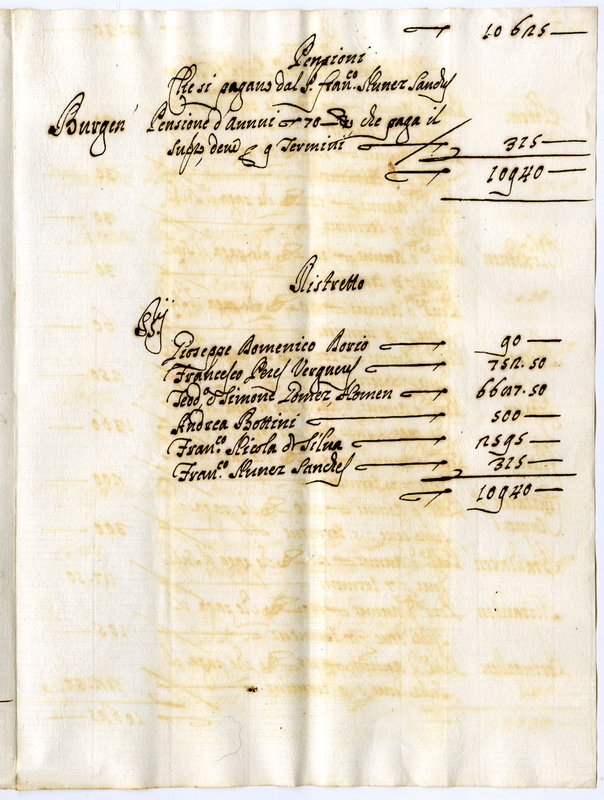 10625
Pensioni
Che si pagano dal S.r Fran.co Nunez Sanches
Burgen' Pensione d'Annui 70 che paga il
Supp. deve 9 Termini 315
10940
Ristretto
SS.ri
Gioseppe Domenico Borio 90
Francesco Peres Vergueres 752.50
Teod.o e Simone Gomez Homen 6687.50
Andrea Bottini 500
Fran.co Nicola de Silva 2595
Fran.co Nunez Sanches 315
10940